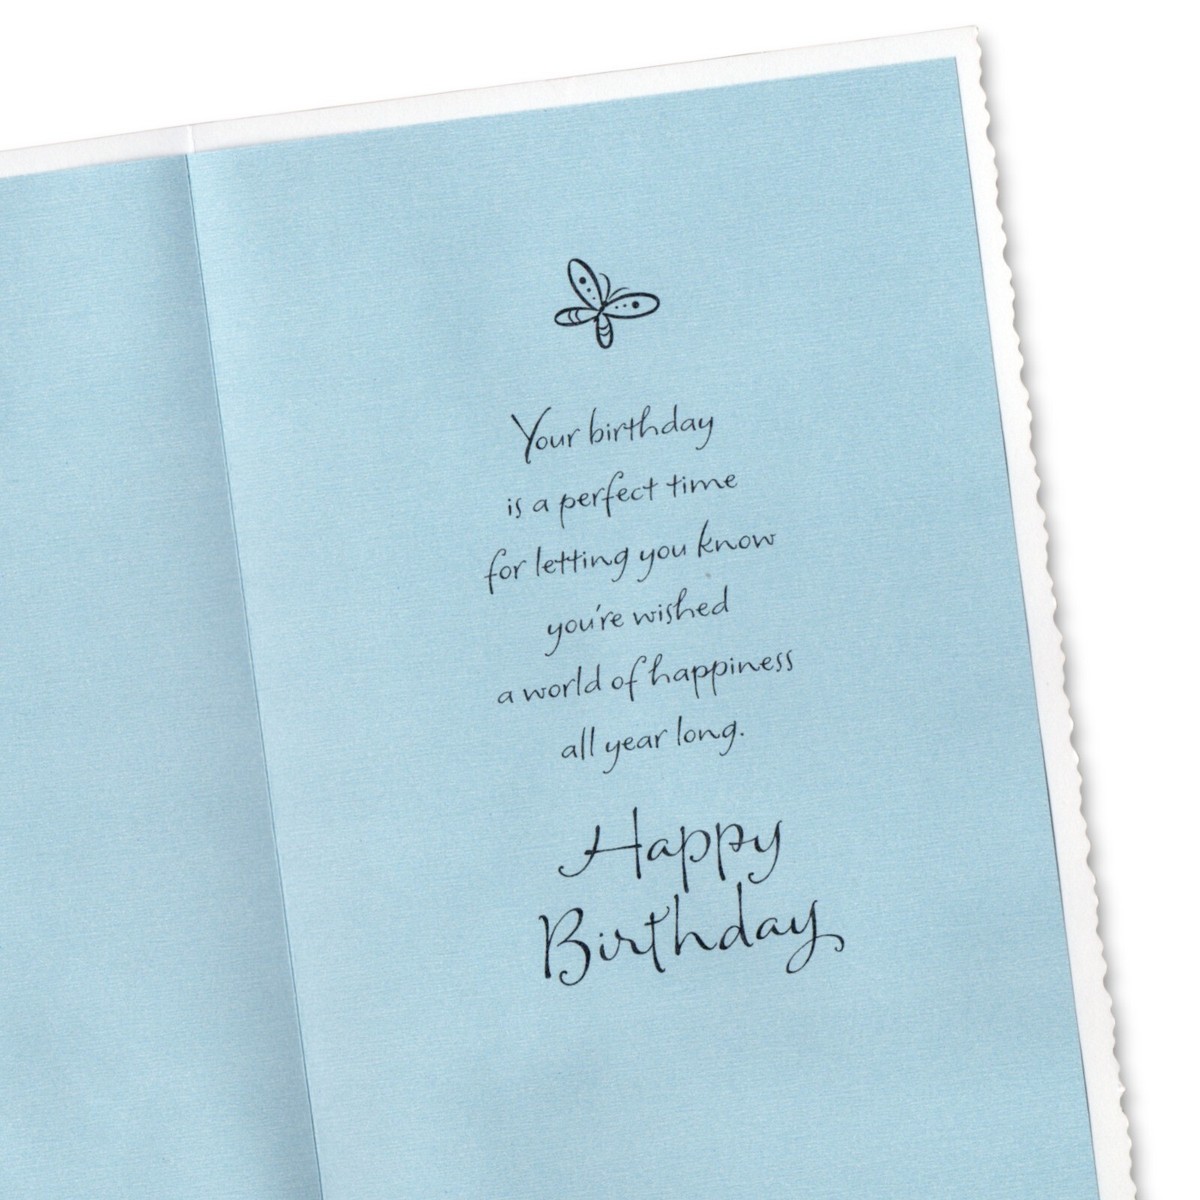 Your birthday
is a perfect time
for letting you know
you're wished
a world of happiness
all year long.
Happy
Birthday